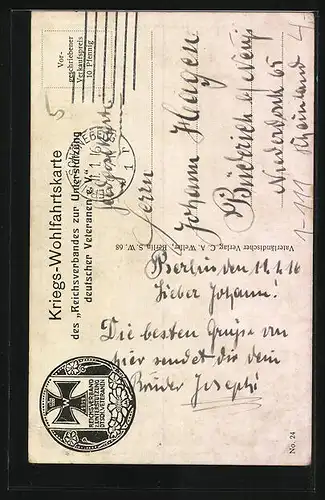 Vor-
geschriebener
Verkaufspreis
10 Pfennig
Kriegs-Wohlfahrtskarte
des „Reichsverbandes zur Unterstützung
deutscher Veteranen e. V."
REICHSVERBAND
ZUR UNTERSTÜTZUNG
DTSCH. VETERANEN
Vaterländischer Verlag C. A. Weller, Berlin S.W. 68
No. 24
Herrn
Johann Hagen
Büderich b. Neuß
Niederdonk 65
Rheinland
Berlin, den 11.4.16
Lieber Johann!
Die besten Grüße von
hier sendet dir dein
Bruder Joseph!
5